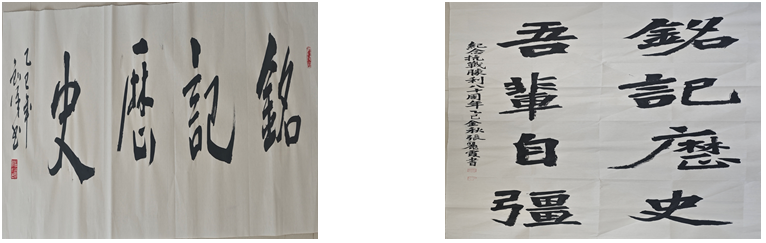 銘記歷史
乙巳年
書
銘記歷史
吾輩自彊
紀念抗戰勝利八十周年乙巳金秋張霞書